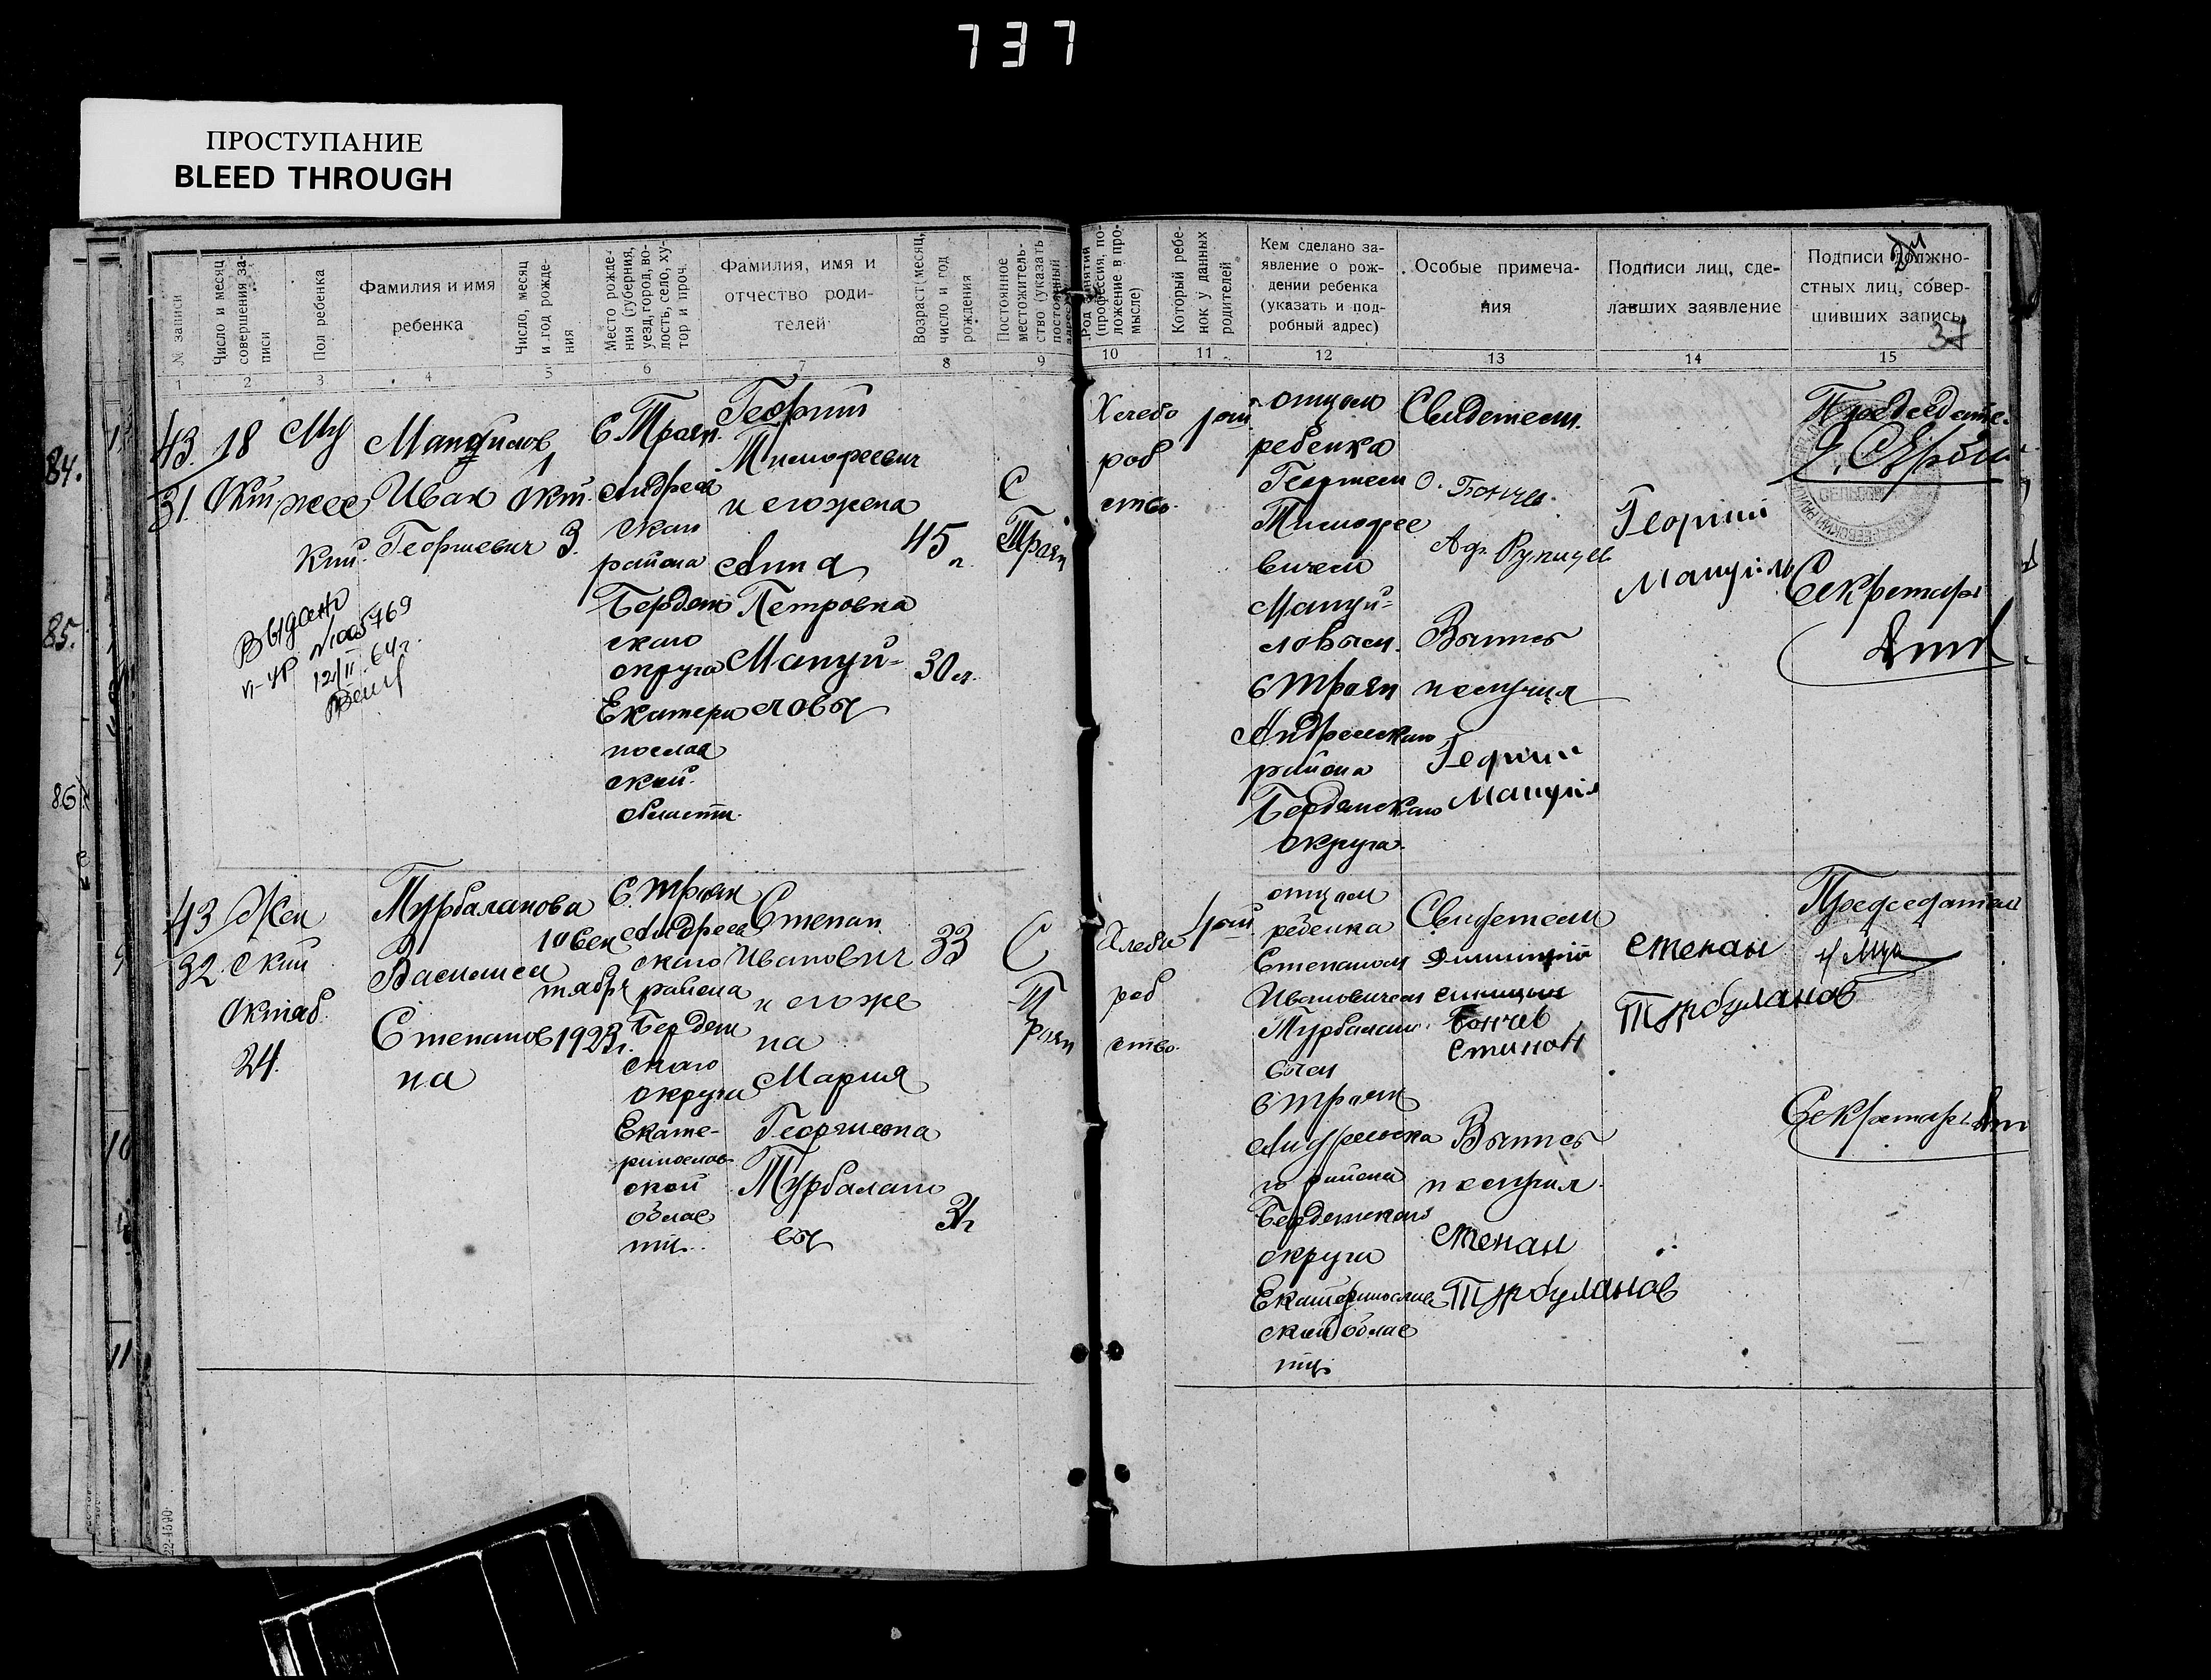 737
ПРОСТУПАНИЕ
BLEED THROUGH
№ записи
Число и месяц совершения записи
Пол ребенка
Фамилия и имя
ребенка
Число, месяц
и год рожде-
ния
Место рожде-
ния (губерния,
уезд, город, во-
лость, село, ху-
тор и проч.
Фамилия, имя и
отчество роди-
телей
Возраст (месяц,
число и год
рождения
Постоянное
местожитель-
ство (указать
постоянный
Род занятий
(профессия, по-
ложение в про-
мысле)
Который ребе-
нок у данных
родителей
Кем сделано за-
явление о рож-
дении ребенка
(указать и под-
робный адрес)
Особые примеча-
ния
Подписи лиц, сде-
лавших заявление
Подписи должно-
стных лиц, совер-
шивших запись
37
1 2 3 4 5 6 7 8 9 10 11 12 13 14 15
84.
85.
86
43
31.
18
Окт
Му
жес
кий.
Мануилов
Иван
Георгиевич
1
Окт.
3.
С. Троян
Андреев
ского
района
Бердян
ского
округа
Екатери
нослав
ской
области.
Георгий
Тимофеевич
и его жена
Анна
Петровна
Мануй-
ловы
45
л.
30 л.
С
Троян
Хлебо
роб
ство.
отцом
ребенка
Георгием
Тимофее
вичем
Мануй-
ловым.
С Троян
Андреевского
района
Бердянского
округа.
Свидетели.
Бончев.
Выпись
получил
Георгий
Председате.
Секретарь
Выдан
№005769
12/II 64г.
43
32.
Жен
ский
Октяб.
24.
Турбаланова
Василиса
Степанов
на
10 Сен
тября
1923г.
С. Троян
Андреев
ского
района
Бердян
ского
округа
Екате-
ринослав
ской
облас
ти.
Степан
Иванович
и его же
на
Мария
Георгиевна
Турбалано
вы
33
С
Т
роян
Хлебо
роб
ство.
отцом
ребенка
Степаном
Ивановичем
Турбалано
вым
С Троян
Андреевска
го района
Бердянского
округа
Екатеринослав
ской облас
ти.
Свидетели
Бончев
Выпись
получил.
Степан
Турбуланов
Степан
Турбуланов
Председатель
Секретарь